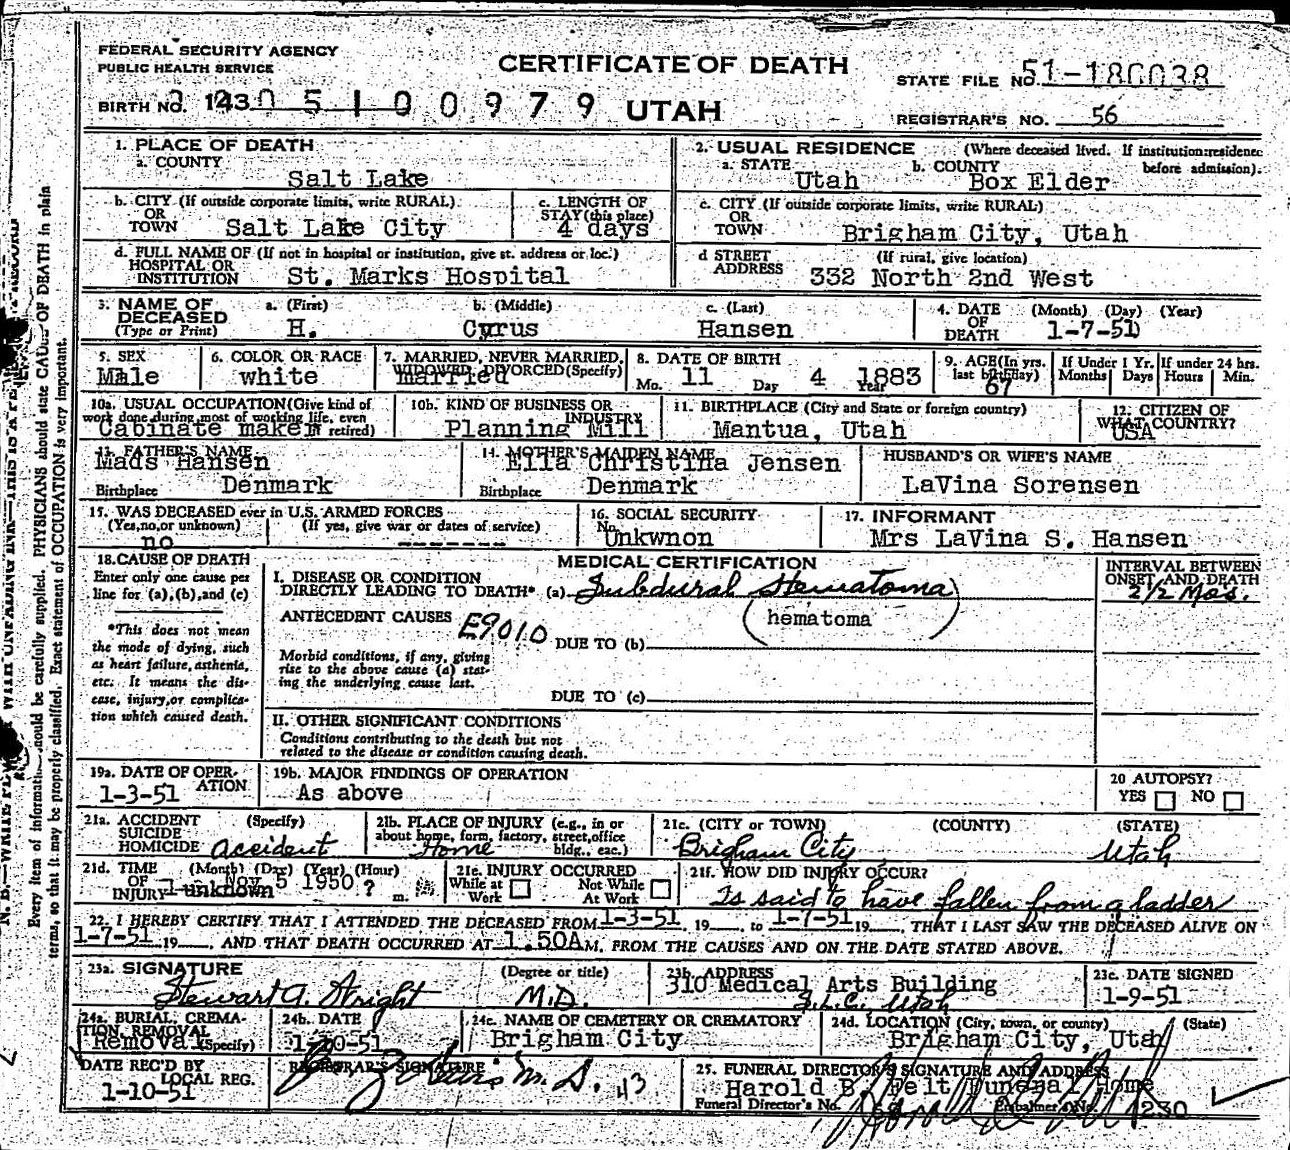 FEDERAL SECURITY AGENCY
PUBLIC HEALTH SERVICE
CERTIFICATE OF DEATH
STATE FILE NO. 51-180038
BIRTH NO. 143 05100979 UTAH
REGISTRAR'S NO. 56
1. PLACE OF DEATH
a. COUNTY
Salt Lake
2. USUAL RESIDENCE (Where deceased lived. If institution: residence before admission).
a. STATE Utah b. COUNTY Box Elder
b. CITY (If outside corporate limits, write RURAL)
OR
TOWN Salt Lake City
c. LENGTH OF
STAY (this place)
4 days
c. CITY (If outside corporate limits, write RURAL)
OR
TOWN Brigham City, Utah
d. FULL NAME OF (If not in hospital or institution, give st. address or loc.)
HOSPITAL OR
INSTITUTION St. Marks Hospital
d STREET (If rural, give location)
ADDRESS 332 North 2nd West
3. NAME OF DECEASED
(Type or Print)
a. (First) b. (Middle) c. (Last)
H. Cyrus Hansen
4. DATE OF DEATH (Month) (Day) (Year)
1-7-51
5. SEX
Male
6. COLOR OR RACE
white
7. MARRIED, NEVER MARRIED,
WIDOWED, DIVORCED (Specify)
married
8. DATE OF BIRTH
Mo. 11 Day 4 1883 Year
9. AGE (In yrs. last birthday)
67
If Under 1 Yr. Months Days
If under 24 hrs. Hours Min.
10a. USUAL OCCUPATION (Give kind of
work done during most of working life, even
if retired)
Cabinate maker
10b. KIND OF BUSINESS OR
INDUSTRY
Planning Mill
11. BIRTHPLACE (City and State or foreign country)
Mantua, Utah
12. CITIZEN OF
WHAT COUNTRY?
USA
13. FATHER'S NAME
Mads Hansen
Birthplace Denmark
14. MOTHER'S MAIDEN NAME
Ella Christina Jensen
Birthplace Denmark
HUSBAND'S OR WIFE'S NAME
LaVina Sorensen
15. WAS DECEASED ever in U.S. ARMED FORCES
(Yes, no, or unknown) (If yes, give war or dates of service)
no -------
16. SOCIAL SECURITY
No.
Unkwnon
17. INFORMANT
Mrs LaVina S. Hansen
18. CAUSE OF DEATH
Enter only one cause per
line for (a), (b), and (c)
*This does not mean
the mode of dying, such
as heart failure, asthenia,
etc. It means the dis-
ease, injury, or complica-
tion which caused death.
MEDICAL CERTIFICATION
I. DISEASE OR CONDITION
DIRECTLY LEADING TO DEATH* (a) Subdural Hematoma
(hematoma)
ANTECEDENT CAUSES E9010
DUE TO (b)
Morbid conditions, if any, giving
rise to the above cause (a) stat-
ing the underlying cause last.
DUE TO (c)
II. OTHER SIGNIFICANT CONDITIONS
Conditions contributing to the death but not
related to the disease or condition causing death.
INTERVAL BETWEEN
ONSET AND DEATH
2 1/2 Mos.
19a. DATE OF OPER-
ATION
1-3-51
19b. MAJOR FINDINGS OF OPERATION
As above
20 AUTOPSY?
YES NO
21a. ACCIDENT (Specify)
SUICIDE
HOMICIDE accident
21b. PLACE OF INJURY (e.g., in or
about home, form, factory, street, office
bldg., eac.)
Home
21c. (CITY or TOWN) (COUNTY) (STATE)
Brigham City Utah
21d. TIME (Month) (Day) (Year) (Hour)
OF
INJURY Nov 5 1950 ? m.
unknown
21e. INJURY OCCURRED
While at Work Not While At Work
21f. HOW DID INJURY OCCUR?
Is said to have fallen from a ladder
22. I HEREBY CERTIFY THAT I ATTENDED THE DECEASED FROM 1-3-51, 19 , to 1-7-51 19 , THAT I LAST SAW THE DECEASED ALIVE ON
1-7-51 19 , AND THAT DEATH OCCURRED AT 1.50A M. FROM THE CAUSES AND ON THE DATE STATED ABOVE.
23a. SIGNATURE (Degree or title)
Stewart A. Wright M.D.
23b. ADDRESS
310 Medical Arts Building
S.L.C. Utah
23c. DATE SIGNED
1-9-51
24a. BURIAL, CREMA-
TION, REMOVAL
(Specify)
Removal
24b. DATE
1-10-51
24c. NAME OF CEMETERY OR CREMATORY
Brigham City
24d. LOCATION (City, town, or county) (State)
Brigham City, Utah
DATE REC'D BY
LOCAL REG.
1-10-51
REGISTRAR'S SIGNATURE
M.D. 43
25. FUNERAL DIRECTOR'S SIGNATURE AND ADDRESS
Harold B. Felt Funeral Home
Funeral Director's No. Embalmer's No. 1230
Every item of information should be carefully supplied. PHYSICIANS should state CAUSE OF DEATH in plain
terms, so that it may be properly classified. Exact statement of OCCUPATION is very important.